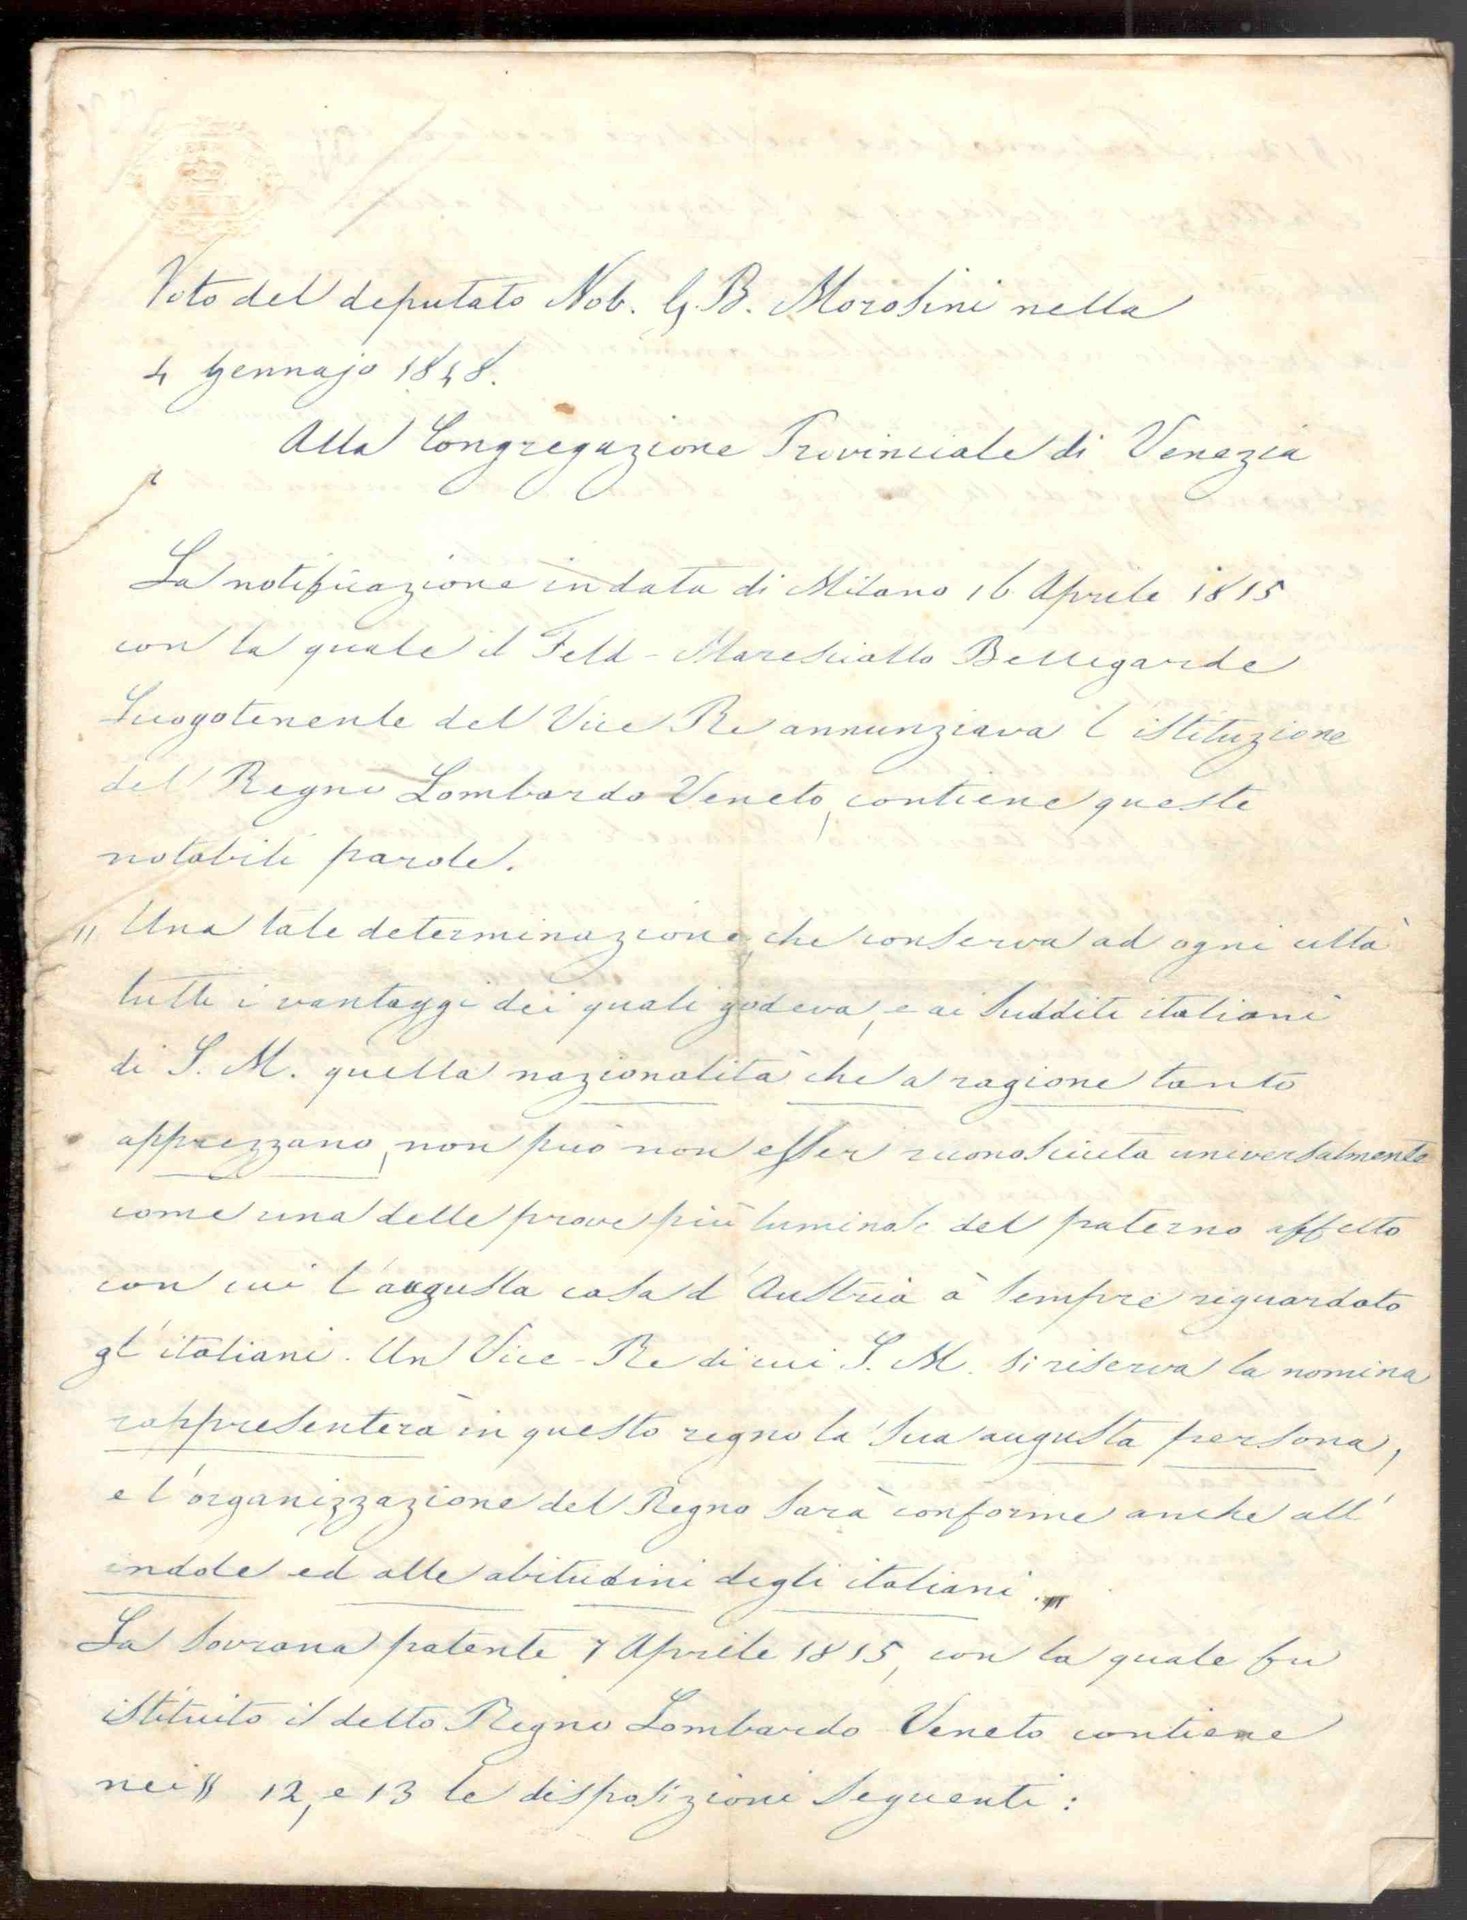 Voto del deputato Nob. G. B. Morosini nella
4 Gennajo 1848.
Alla Congregazione Provinciale di Venezia
La notificazione in data di Milano 16 Aprile 1815
con la quale il Feld-Maresciallo Bellegarde
Luogotenente del Vice Re annunziava l'istituzione
del Regno Lombardo Veneto, contiene queste
notabili parole.
" Una tale determinazione, che conserva ad ogni città
tutti i vantaggi dei quali godeva, e ai sudditi italiani
di S. M. quella nazionalità che a ragione tanto
apprezzano, non può non esser riconosciuta universalmente
come una delle prove più luminose del paterno affetto
con cui l'augusta casa d'Austria à sempre riguardato
gl'italiani. Un Vice-Re di cui S. M. si riserva la nomina
rappresenterà in questo regno la sua augusta persona,
e l'organizzazione del Regno sarà conforme anche all'
indole ed alle abitudini degli italiani. "
La Sovrana patente 7 Aprile 1815, con la quale fu
istituito il detto Regno Lombardo Veneto contiene
nei §§ 12, e 13 le disposizioni seguenti: